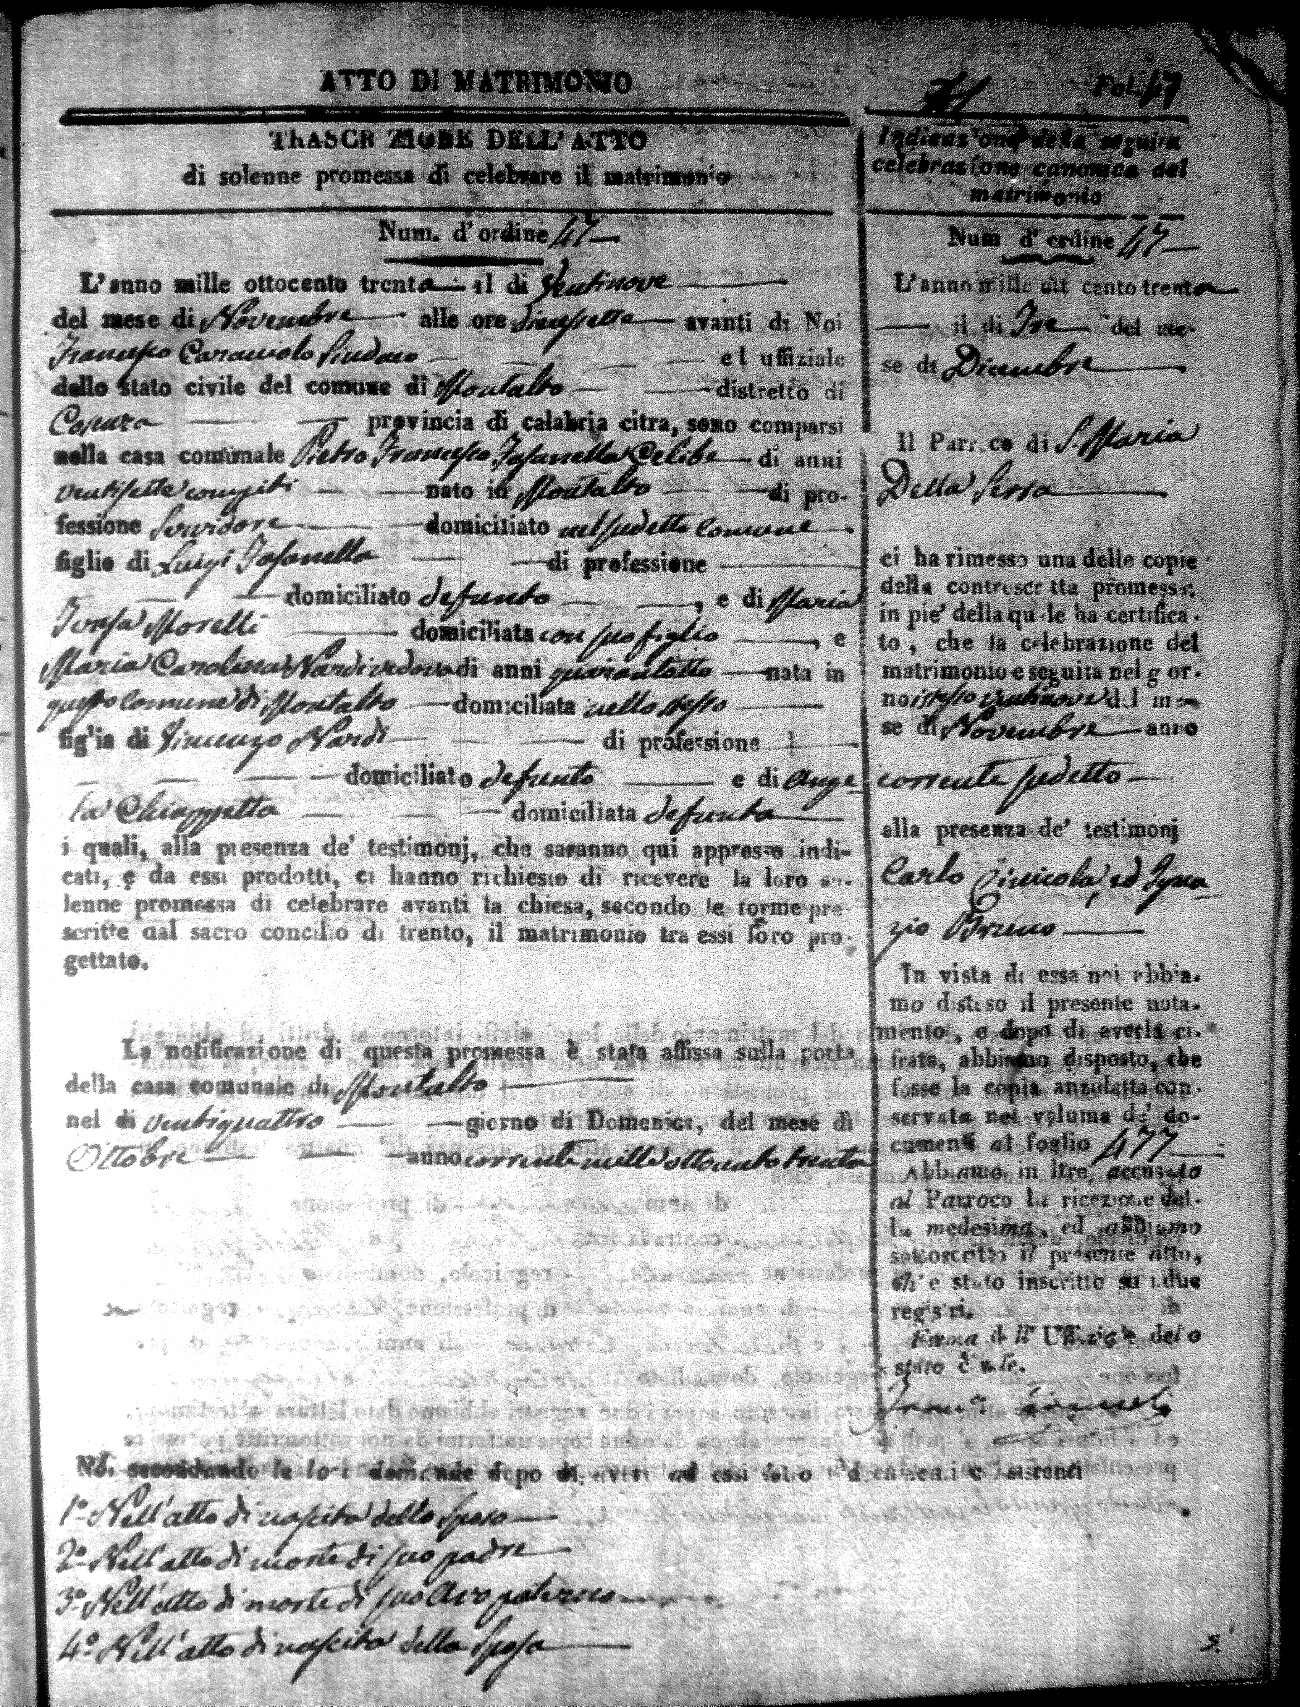 ATTO DI MATRIMONIO
Fol. 47
TRASCRIZIONE DELL' ATTO
di solenne promessa di celebrare il matrimonio
Num. d' ordine 47
L'anno mille ottocento trenta il di Ventinove
del mese di Novembre alle ore avanti di Noi
Francesco Sindaco ed uffiziale
dello stato civile del comune di Montalto distretto di
Cosenza provincia di calabria citra, sono comparsi
nella casa comunale Pietro Francesco Celibe di anni
ventisette compiti nato in Montalto di pro-
fessione domiciliato nel sudetto comune
figlio di Luigi di professione
domiciliato defunto , e di Maria
Morelli domiciliata con suo figlio , e
Maria Carolina Nardi vedova di anni quarantotto nata in
questo comune di Montalto domiciliata nello stesso
figlia di Vincenzo Nardi di professione
domiciliato defunto e di Ange
la Chiappetta domiciliata defunta
i quali, alla presenza de' testimonj, che saranno qui appresso indi-
cati, e da essi prodotti, ci hanno richiesto di ricevere la loro so-
lenne promessa di celebrare avanti la chiesa, secondo le forme pre-
scritte dal sacro concilio di trento, il matrimonio tra essi loro pro-
gettato.
La notificazione di questa promessa è stata affissa sulla porta
della casa comunale di Montalto
nel di ventiquattro giorno di Domenica, del mese di
Ottobre anno corrente mille ottocento trenta
Noi secondando le loro domande dopo di aver ad essi letto i documenti consistenti
1.° Nell'atto di nascita dello Sposo
2.° Nell'atto di morte di suo padre
3.° Nell'atto di morte di suo Avo paterno
4.° Nell'atto di nascita della Sposa
Indicazione della seguita
celebrazione canonica del
matrimonio
Num d' ordine 47
L'anno mille ott cento trenta
il di Tre del me-
se di Dicembre
Il Parroco di S. Maria
Della Serra
ci ha rimesso una delle copie
della controscritta promessa,
in pie' della quale ha certifica-
to, che la celebrazione del
matrimonio e seguita nel gior-
no istesso ventinove del me-
se di Novembre anno
corrente sudetto
alla presenza de' testimonj
Carlo ed Igna
zio Bruno
In vista di essa noi abbia-
mo disteso il presente nota-
mento, e dopo di averla ci-
frata, abbiamo disposto, che
fosse la copia anzidetta con-
servata nel volume de' do-
cumenti al foglio 477
Abbiamo in ltre, accusato
al Parroco la ricezione del-
la medesima, ed abbiamo
sottoscritto il presente atto,
ch'e stato inscritto su i due
registri.
Firma dell' Uffiziale dello
stato civile.